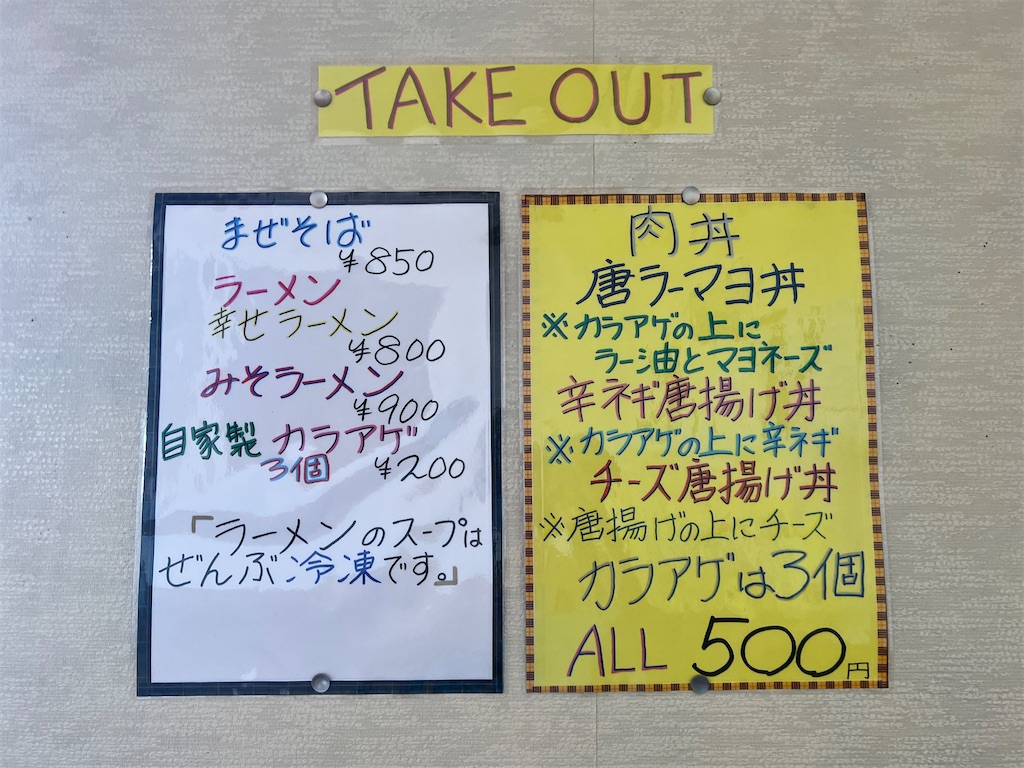 TAKE OUT
まぜそば
¥850
ラーメン
幸せラーメン
¥800
みそラーメン
¥900
自家製 カラアゲ
3個 ¥200
「ラーメンのスープは
ぜんぶ冷凍です。」
肉丼
唐ラーマヨ丼
※カラアゲの上に
ラー油とマヨネーズ
辛ネギ唐揚げ丼
※カラアゲの上に辛ネギ
チーズ唐揚げ丼
※唐揚げの上にチーズ
カラアゲは3個
ALL 500円